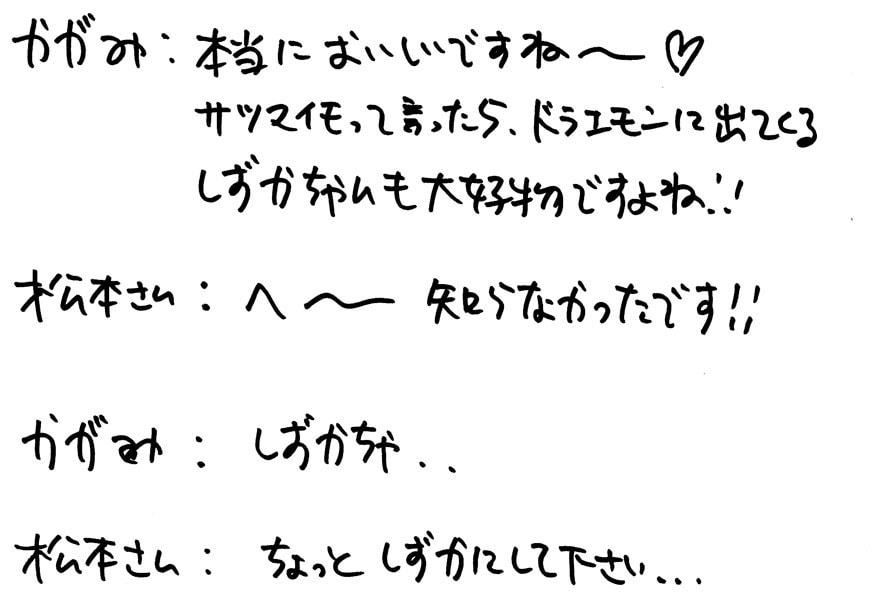 かがみ：本当においしいですね〜♡
サツマイモって言ったら、ドラエモンに出てくる
しずかちゃんも大好物ですよね!!
松本さん：へ〜 知らなかったです!!
かがみ：しずかちゃ..
松本さん：ちょっとしずかにして下さい...